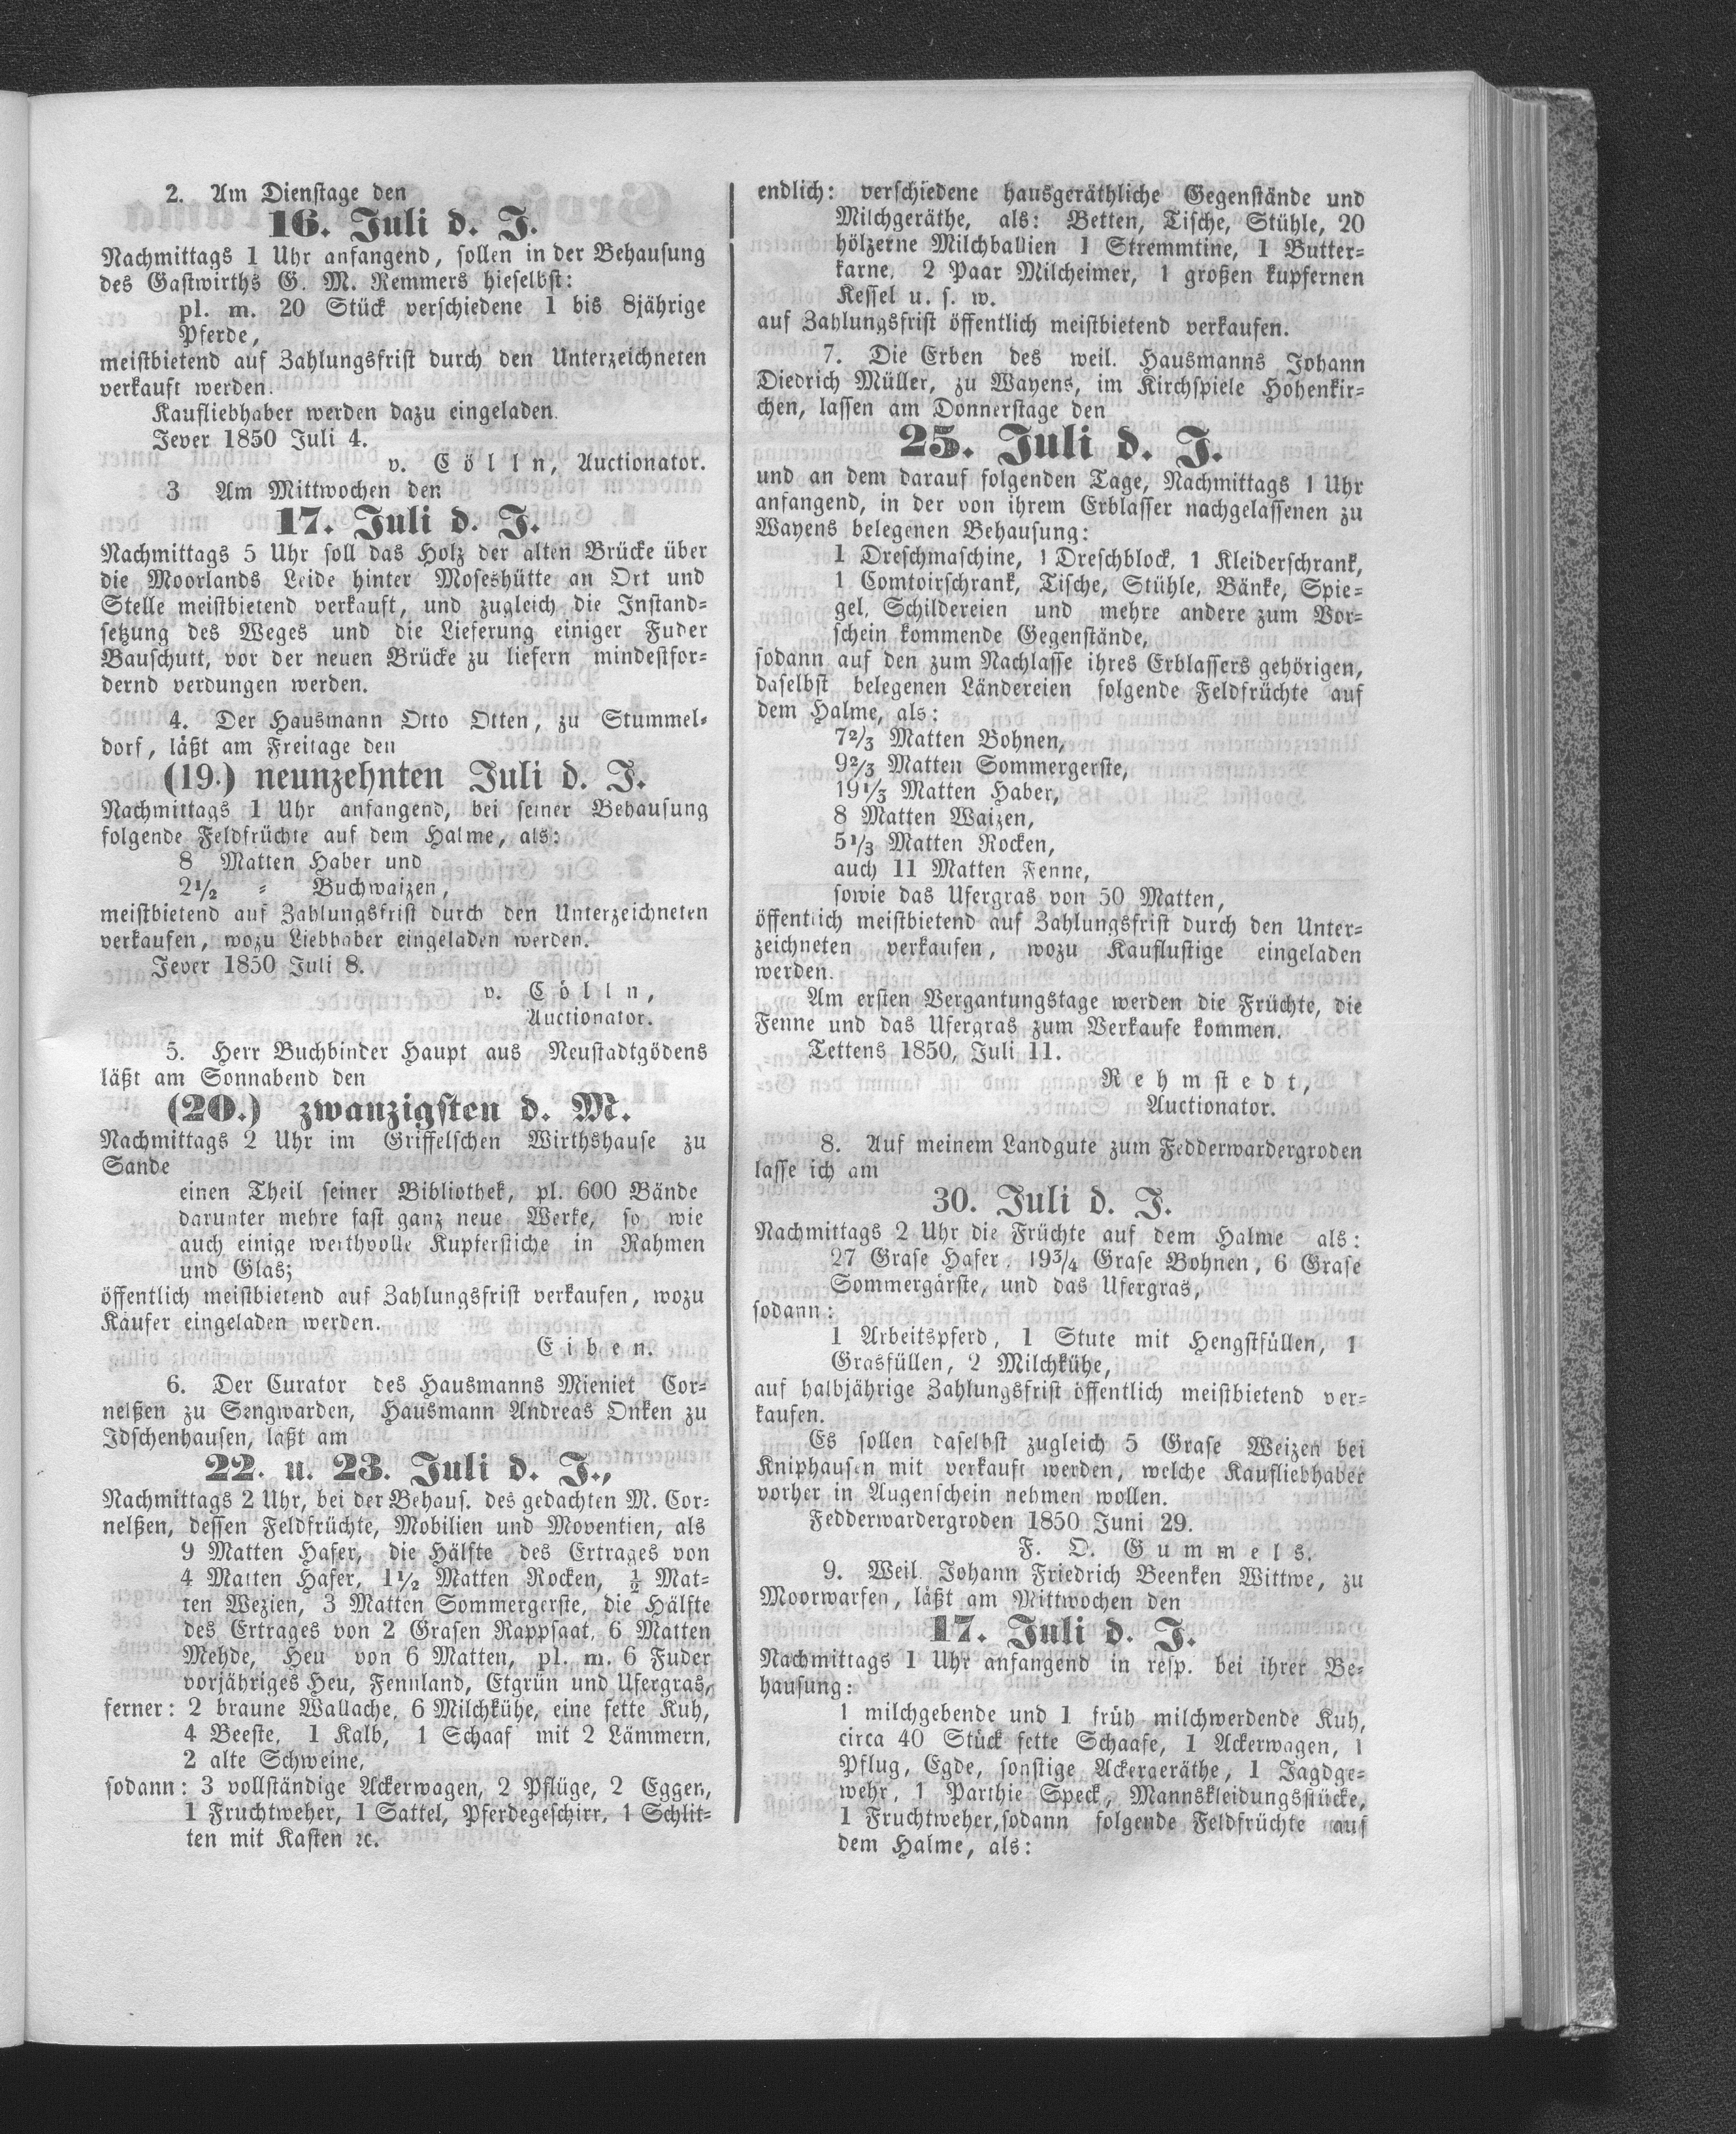 2. Am Dienstage den
16. Juli d. J.
Nachmittags 1 Uhr anfangend, sollen in der Behausung
des Gastwirths G. M. Remmers hieselbst:
pl. m. 20 Stück verschiedene 1 bis 8jährige
Pferde,
meistbietend auf Zahlungsfrist durch den Unterzeichneten
verkauft werden.
Kaufliebhaber werden dazu eingeladen.
Jever 1850 Juli 4.
v. Cölln, Auctionator.
3 Am Mittwochen den
17. Juli d. J.
Nachmittags 5 Uhr soll das Holz der alten Brücke über
die Moorlands Leide hinter Moseshütte an Ort und
Stelle meistbietend verkauft, und zugleich die Instand-
setzung des Weges und die Lieferung einiger Fuder
Bauschutt, vor der neuen Brücke zu liefern mindestfor-
dernd verdungen werden.
4. Der Hausmann Otto Otten, zu Stummel-
dorf, läßt am Freitage den
(19.) neunzehnten Juli d. J.
Nachmittags 1 Uhr anfangend, bei seiner Behausung
folgende Feldfrüchte auf dem Halme, als:
8 Matten Haber und
2½ „ Buchwaizen,
meistbietend auf Zahlungsfrist durch den Unterzeichneten
verkaufen, wozu Liebhaber eingeladen werden.
Jever 1850 Juli 8.
v. Cölln,
Auctionator.
5. Herr Buchbinder Haupt aus Neustadtgödens
läßt am Sonnabend den
(20.) zwanzigsten d. M.
Nachmittags 2 Uhr im Griffelschen Wirthshause zu
Sande
einen Theil seiner Bibliothek, pl. 600 Bände
darunter mehre fast ganz neue Werke, so wie
auch einige werthvolle Kupferstiche in Rahmen
und Glas;
öffentlich meistbietend auf Zahlungsfrist verkaufen, wozu
Käufer eingeladen werden.
Eiben.
6. Der Curator des Hausmanns Mieniet Cor-
nelßen zu Sengwarden, Hausmann Andreas Onken zu
Idschenhausen, läßt am
22. u. 23. Juli d. J.,
Nachmittags 2 Uhr, bei der Behaus. des gedachten M. Cor-
nelßen, dessen Feldfrüchte, Mobilien und Moventien, als
9 Matten Hafer, die Hälfte des Ertrages von
4 Matten Hafer, 1½ Matten Rocken, ½ Mat-
ten Wezien, 3 Matten Sommergerste, die Hälfte
des Ertrages von 2 Grasen Rappsaat, 6 Matten
Mehde, Heu von 6 Matten, pl. m. 6 Fuder
vorjähriges Heu, Fennland, Etgrün und Ufergras,
ferner: 2 braune Wallache, 6 Milchkühe, eine fette Kuh,
4 Beeste, 1 Kalb, 1 Schaaf mit 2 Lämmern,
2 alte Schweine,
sodann: 3 vollständige Ackerwagen, 2 Pflüge, 2 Eggen,
1 Fruchtweher, 1 Sattel, Pferdegeschirr, 1 Schlit-
ten mit Kasten ꝛc.
endlich: verschiedene hausgeräthliche Gegenstände und
Milchgeräthe, als: Betten, Tische, Stühle, 20
hölzerne Milchballien 1 Stremmtine, 1 Butter-
karne, 2 Paar Milcheimer, 1 großen kupfernen
Kessel u. s. w.
auf Zahlungsfrist öffentlich meistbietend verkaufen.
7. Die Erben des weil. Hausmanns Johann
Diedrich Müller, zu Wayens, im Kirchspiele Hohenkir-
chen, lassen am Donnerstage den
25. Juli d. J.
und an dem darauf folgenden Tage, Nachmittags 1 Uhr
anfangend, in der von ihrem Erblasser nachgelassenen zu
Wayens belegenen Behausung:
1 Dreschmaschine, 1 Dreschblock, 1 Kleiderschrank,
1 Comtoirschrank, Tische, Stühle, Bänke, Spie-
gel, Schildereien und mehre andere zum Vor-
schein kommende Gegenstände,
sodann auf den zum Nachlasse ihres Erblassers gehörigen,
daselbst belegenen Ländereien folgende Feldfrüchte auf
dem Halme, als:
7⅔ Matten Bohnen,
9⅔ Matten Sommergerste,
19⅓ Matten Haber,
8 Matten Waizen,
5⅓ Matten Rocken,
auch 11 Matten Fenne,
sowie das Ufergras von 50 Matten,
öffentlich meistbietend auf Zahlungsfrist durch den Unter-
zeichneten verkaufen, wozu Kauflustige eingeladen
werden.
Am ersten Vergantungstage werden die Früchte, die
Fenne und das Ufergras zum Verkaufe kommen.
Tettens 1850, Juli 11.
Rehmstedt,
Auctionator.
8. Auf meinem Landgute zum Fedderwardergroden
lasse ich am
30. Juli d. J.
Nachmittags 2 Uhr die Früchte auf dem Halme als:
27 Grase Hafer, 19¾ Grase Bohnen, 6 Grase
Sommergärste, und das Ufergras,
sodann:
1 Arbeitspferd, 1 Stute mit Hengstfüllen, 1
Grasfüllen, 2 Milchkühe,
auf halbjährige Zahlungsfrist öffentlich meistbietend ver-
kaufen.
Es sollen daselbst zugleich 5 Grase Weizen bei
Kniphausen mit verkauft werden, welche Kaufliebhaber
vorher in Augenschein nehmen wollen.
Fedderwardergroden 1850 Juni 29.
F. O. Gummels.
9. Weil. Johann Friedrich Beenken Wittwe, zu
Moorwarfen, läßt am Mittwochen den
17. Juli d. J.
Nachmittags 1 Uhr anfangend in resp. bei ihrer Be-
hausung:
1 milchgebende und 1 früh milchwerdende Kuh,
circa 40 Stück fette Schaafe, 1 Ackerwagen, 1
Pflug, Egde, sonstige Ackergeräthe, 1 Jagdge-
wehr, 1 Parthie Speck, Mannskleidungsstücke,
1 Fruchtweher, sodann folgende Feldfrüchte auf
dem Halme, als: